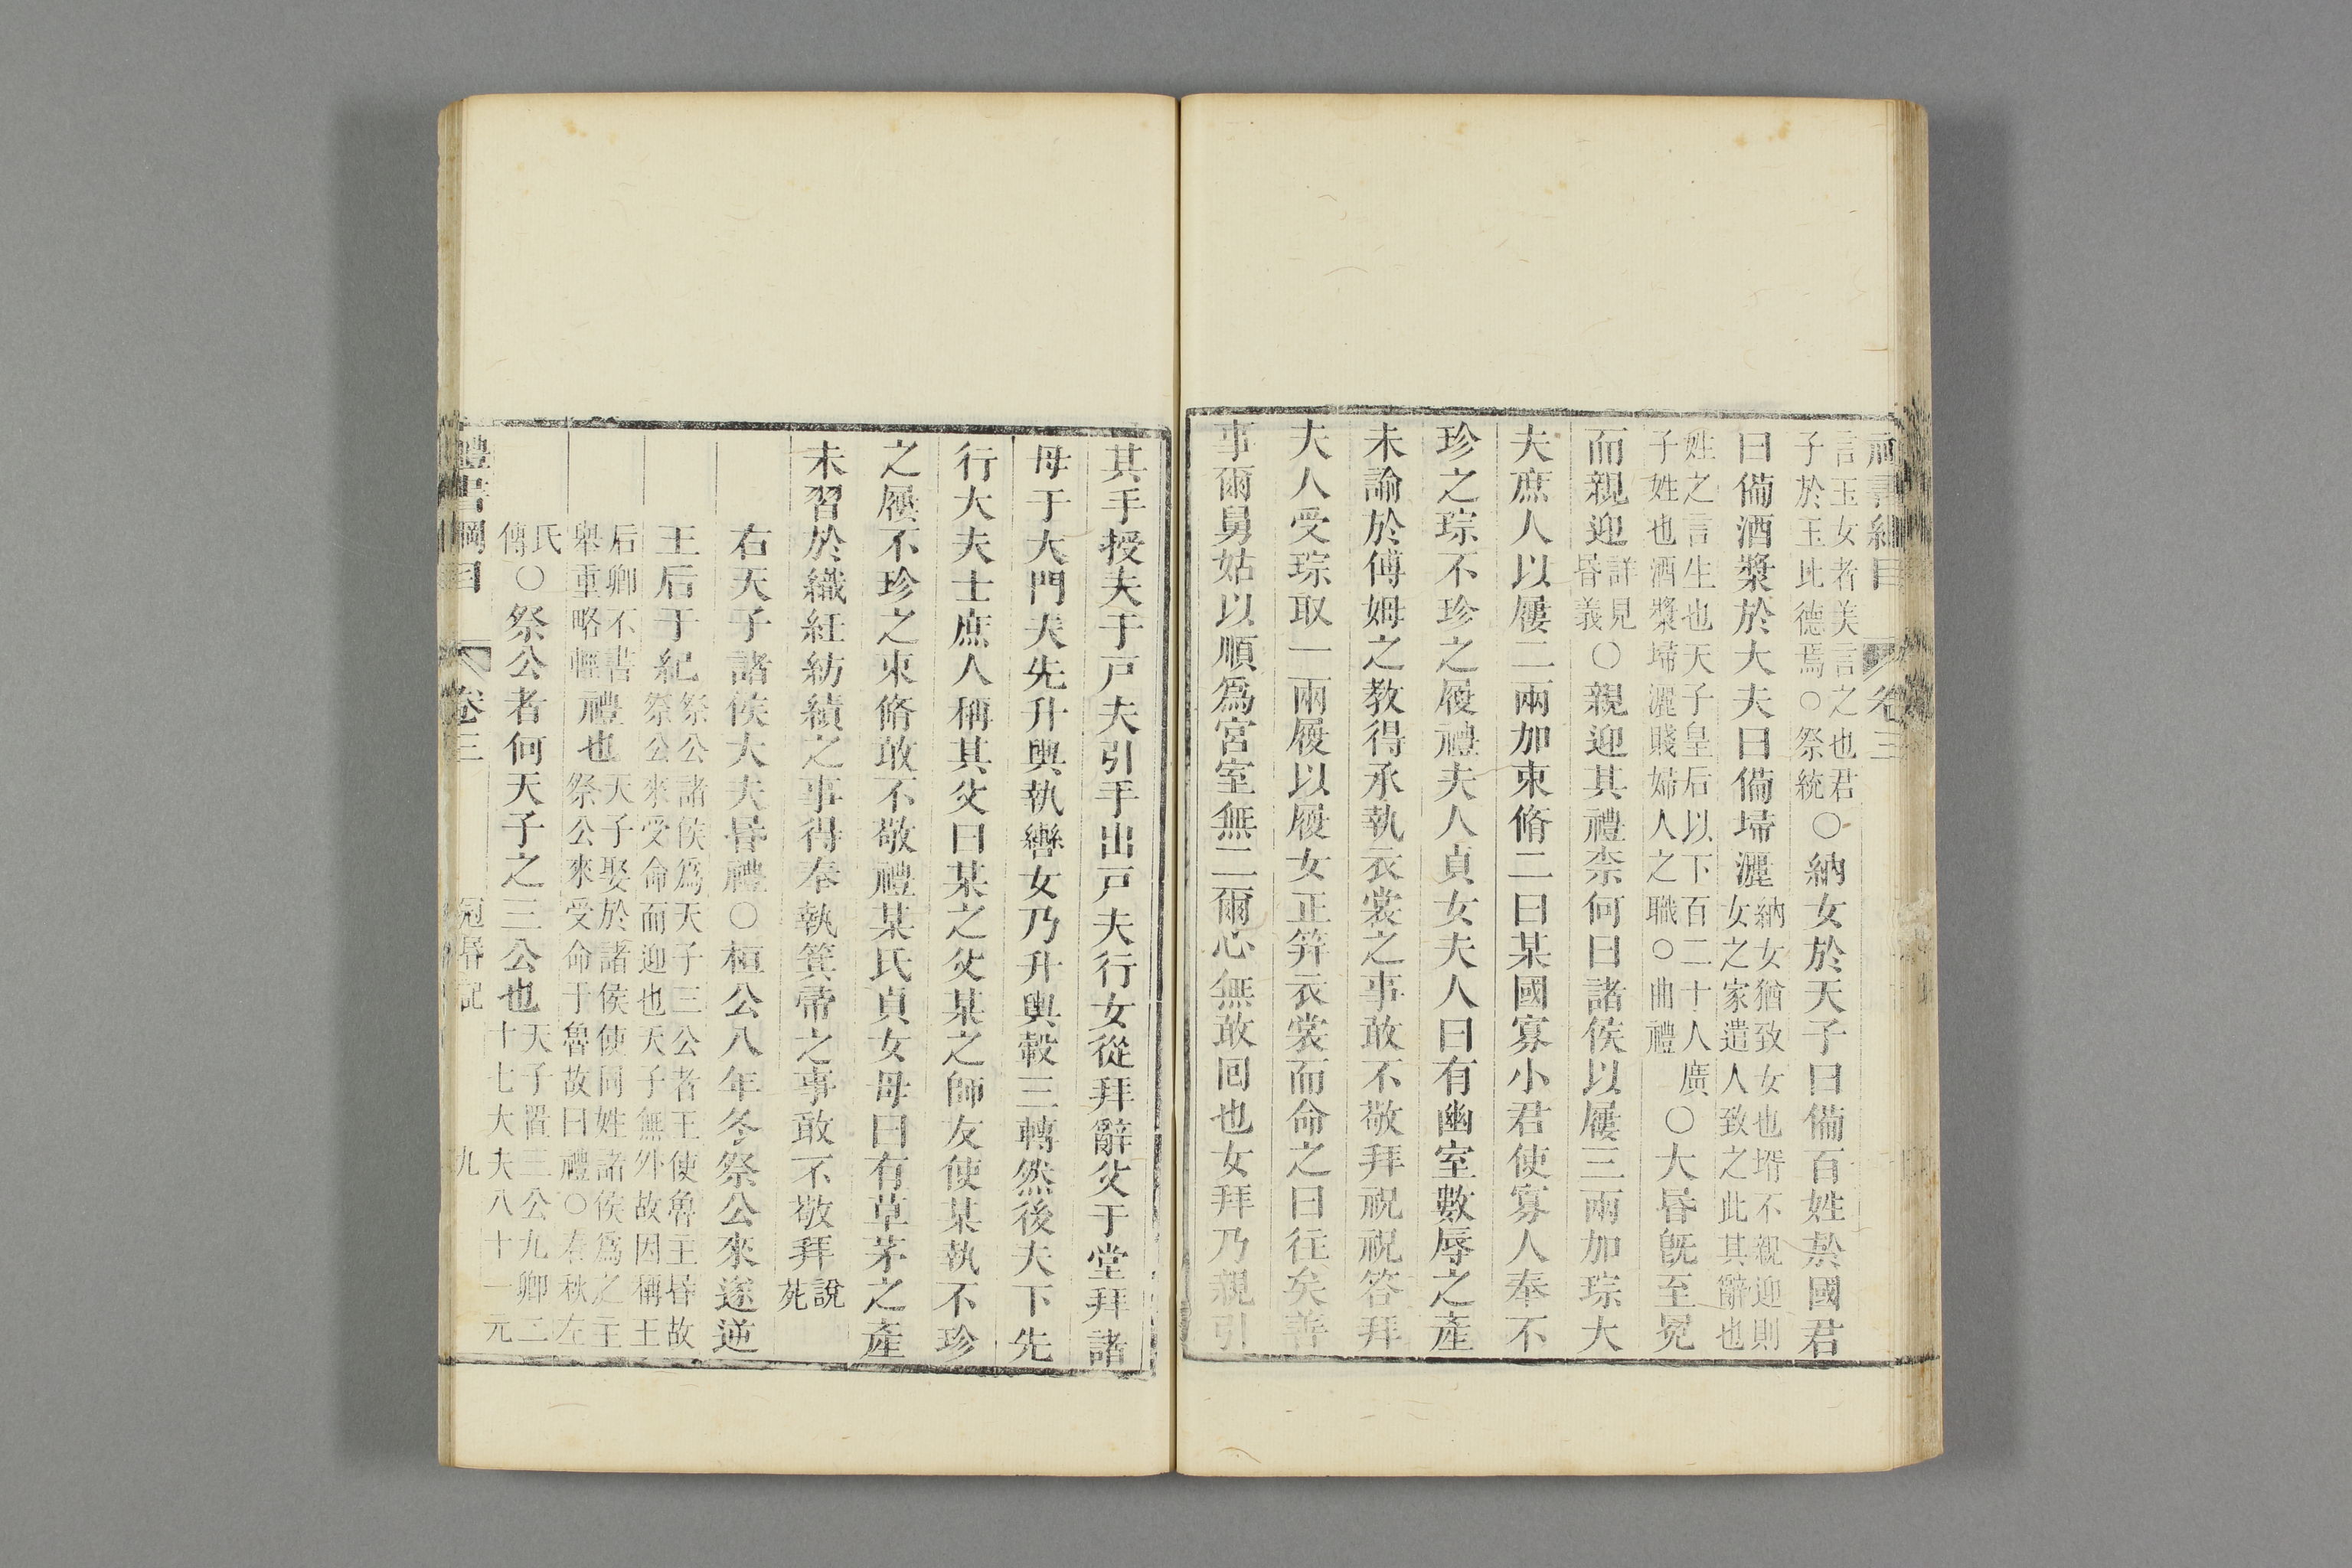 言玉女者美言之也君
子於玉比德焉○祭統○納女於天子曰備百姓於國君
曰備酒漿於大夫曰備埽灑納女猶致女也壻不親迎則
女之家遣人致之此其辭也
姓之言生也天子皇后以下百二十人廣
子姓也酒漿埽灑賤婦人之職○曲禮○大昏旣至冕
而親迎詳見
昏義○親迎其禮柰何曰諸侯以屨三兩加琮大
夫庶人以屨二兩加束脩二曰某國寡小君使寡人奉不
珍之琮不珍之屨禮夫人貞女夫人曰有幽室數辱之產
未諭於傅姆之敎得承執衣裳之事敢不敬拜祝祝答拜
大人受琮取一兩屨以履女正筓衣裳而命之曰往矣善
事爾舅姑以順爲宮室無二爾心無敢回也女拜乃親引
其手授夫于戸夫引手出戸夫行女從拜辭父于堂拜諸
母于大門夫先升輿執轡女乃升輿轂三轉然後夫下先
行大夫士庶人稱其父曰某之父某之師友使某執不珍
之屨不珍之束脩敢不敬禮某氏貞女母曰有草茅之產
未習於織紅紡績之事得奉執箕帚之事敢不敬拜說
苑
右天子諸侯大夫昏禮○桓公八年冬祭公來遂逆
王后于紀祭公諸侯爲天子三公者王使魯主昏故
祭公來受命而迎也天子無外故因稱王
后卿不書
舉重略輕禮也天子娶於諸侯使同姓諸侯爲之主
祭公來受命于魯故曰禮○春秋左
氏
傳○祭公者何天子之三公也天子置三公九卿二
十七大夫八十一元
禮書綱目 卷三 冠昏記 九